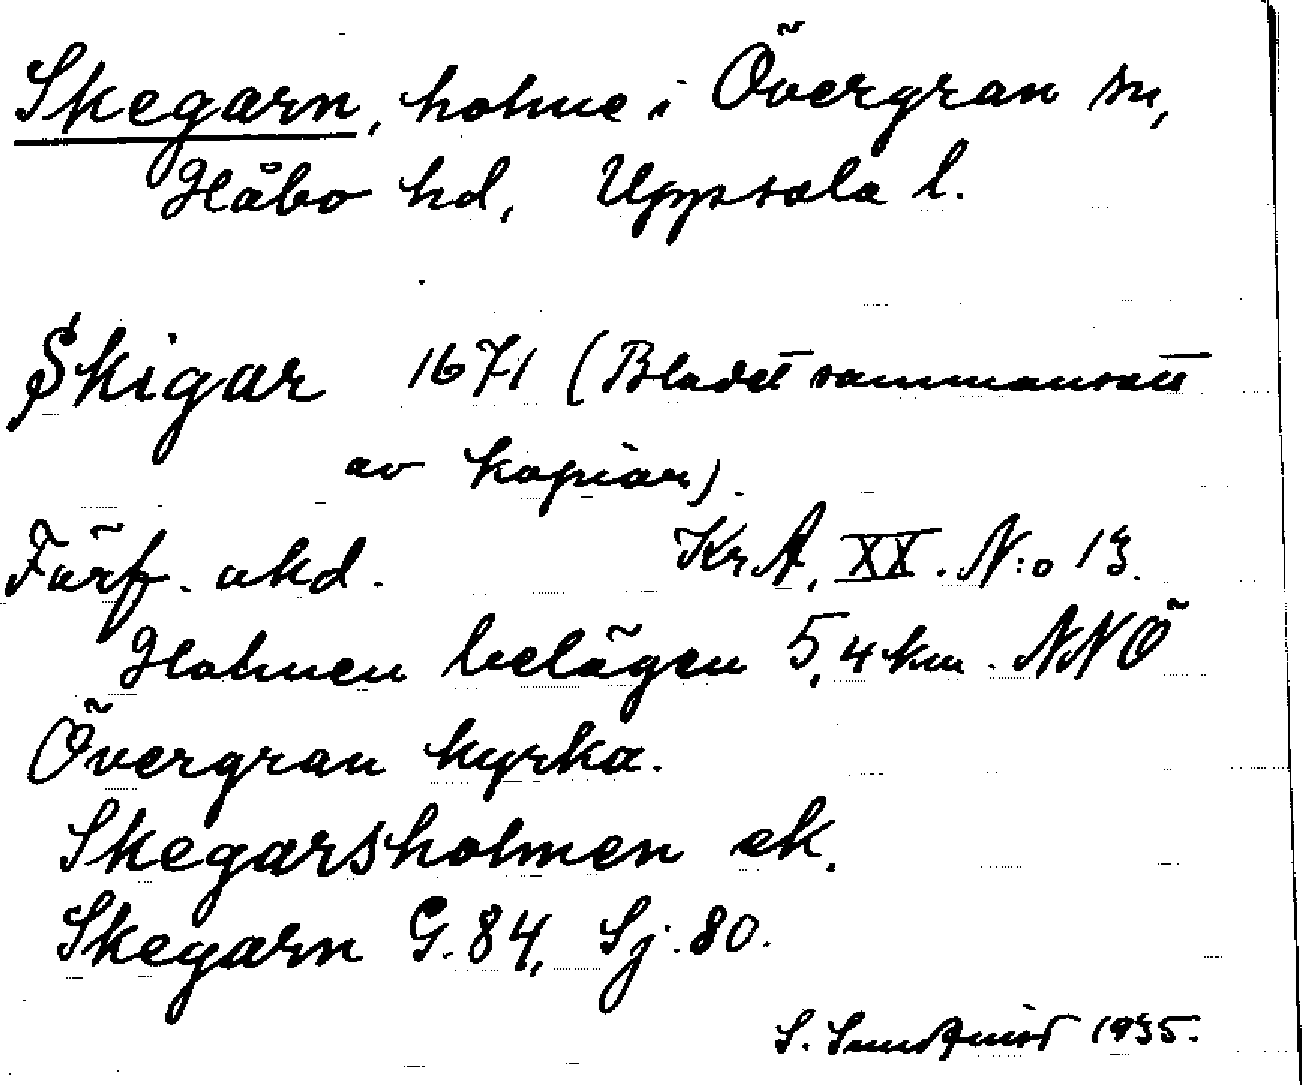 Skegarn, holme i Övergran sn,
Håbo hd, Uppsala l.
Skigar 1671 (Bladet sammansatt
av kopior).
Förf. okd. KrA, XX. N:o 13.
Holmen belägen 5,4 km. NNÖ
Övergran kyrka.
Skegarsholmen ek.
Skegarn G. 84, Sj. 80.
S. Sundqvist 1935.